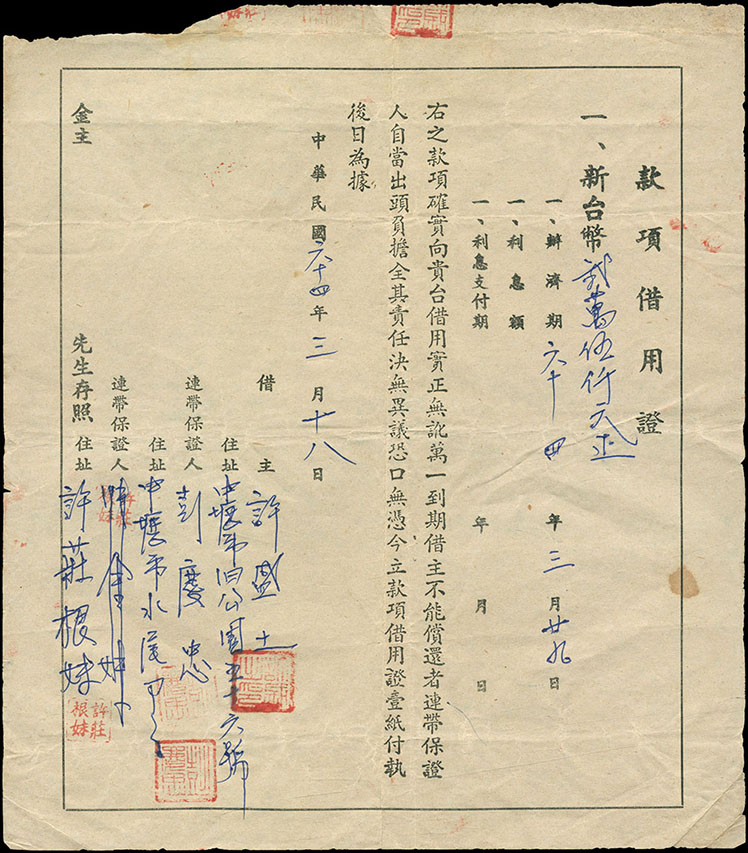 款項借用證
一、新台幣貳萬伍仟元正
一、辦濟期 六十四年三月廿九日
一、利息額
一、利息支付期 年 月 日
右之款項確實向貴台借用實正無訛萬一到期借主不能償還者連帶保證
人自當出頭負擔全其責任決無異議恐口無憑今立款項借用證壹紙付執
後日為據
中華民國六十四年三月十八日
借主 許盛土
住址 中壢市 公園五十六號
連帶保證人 彭慶忠
住址 中壢市水尾
連帶保證人
住址 許莊根妹
許莊根妹
金主 先生存照